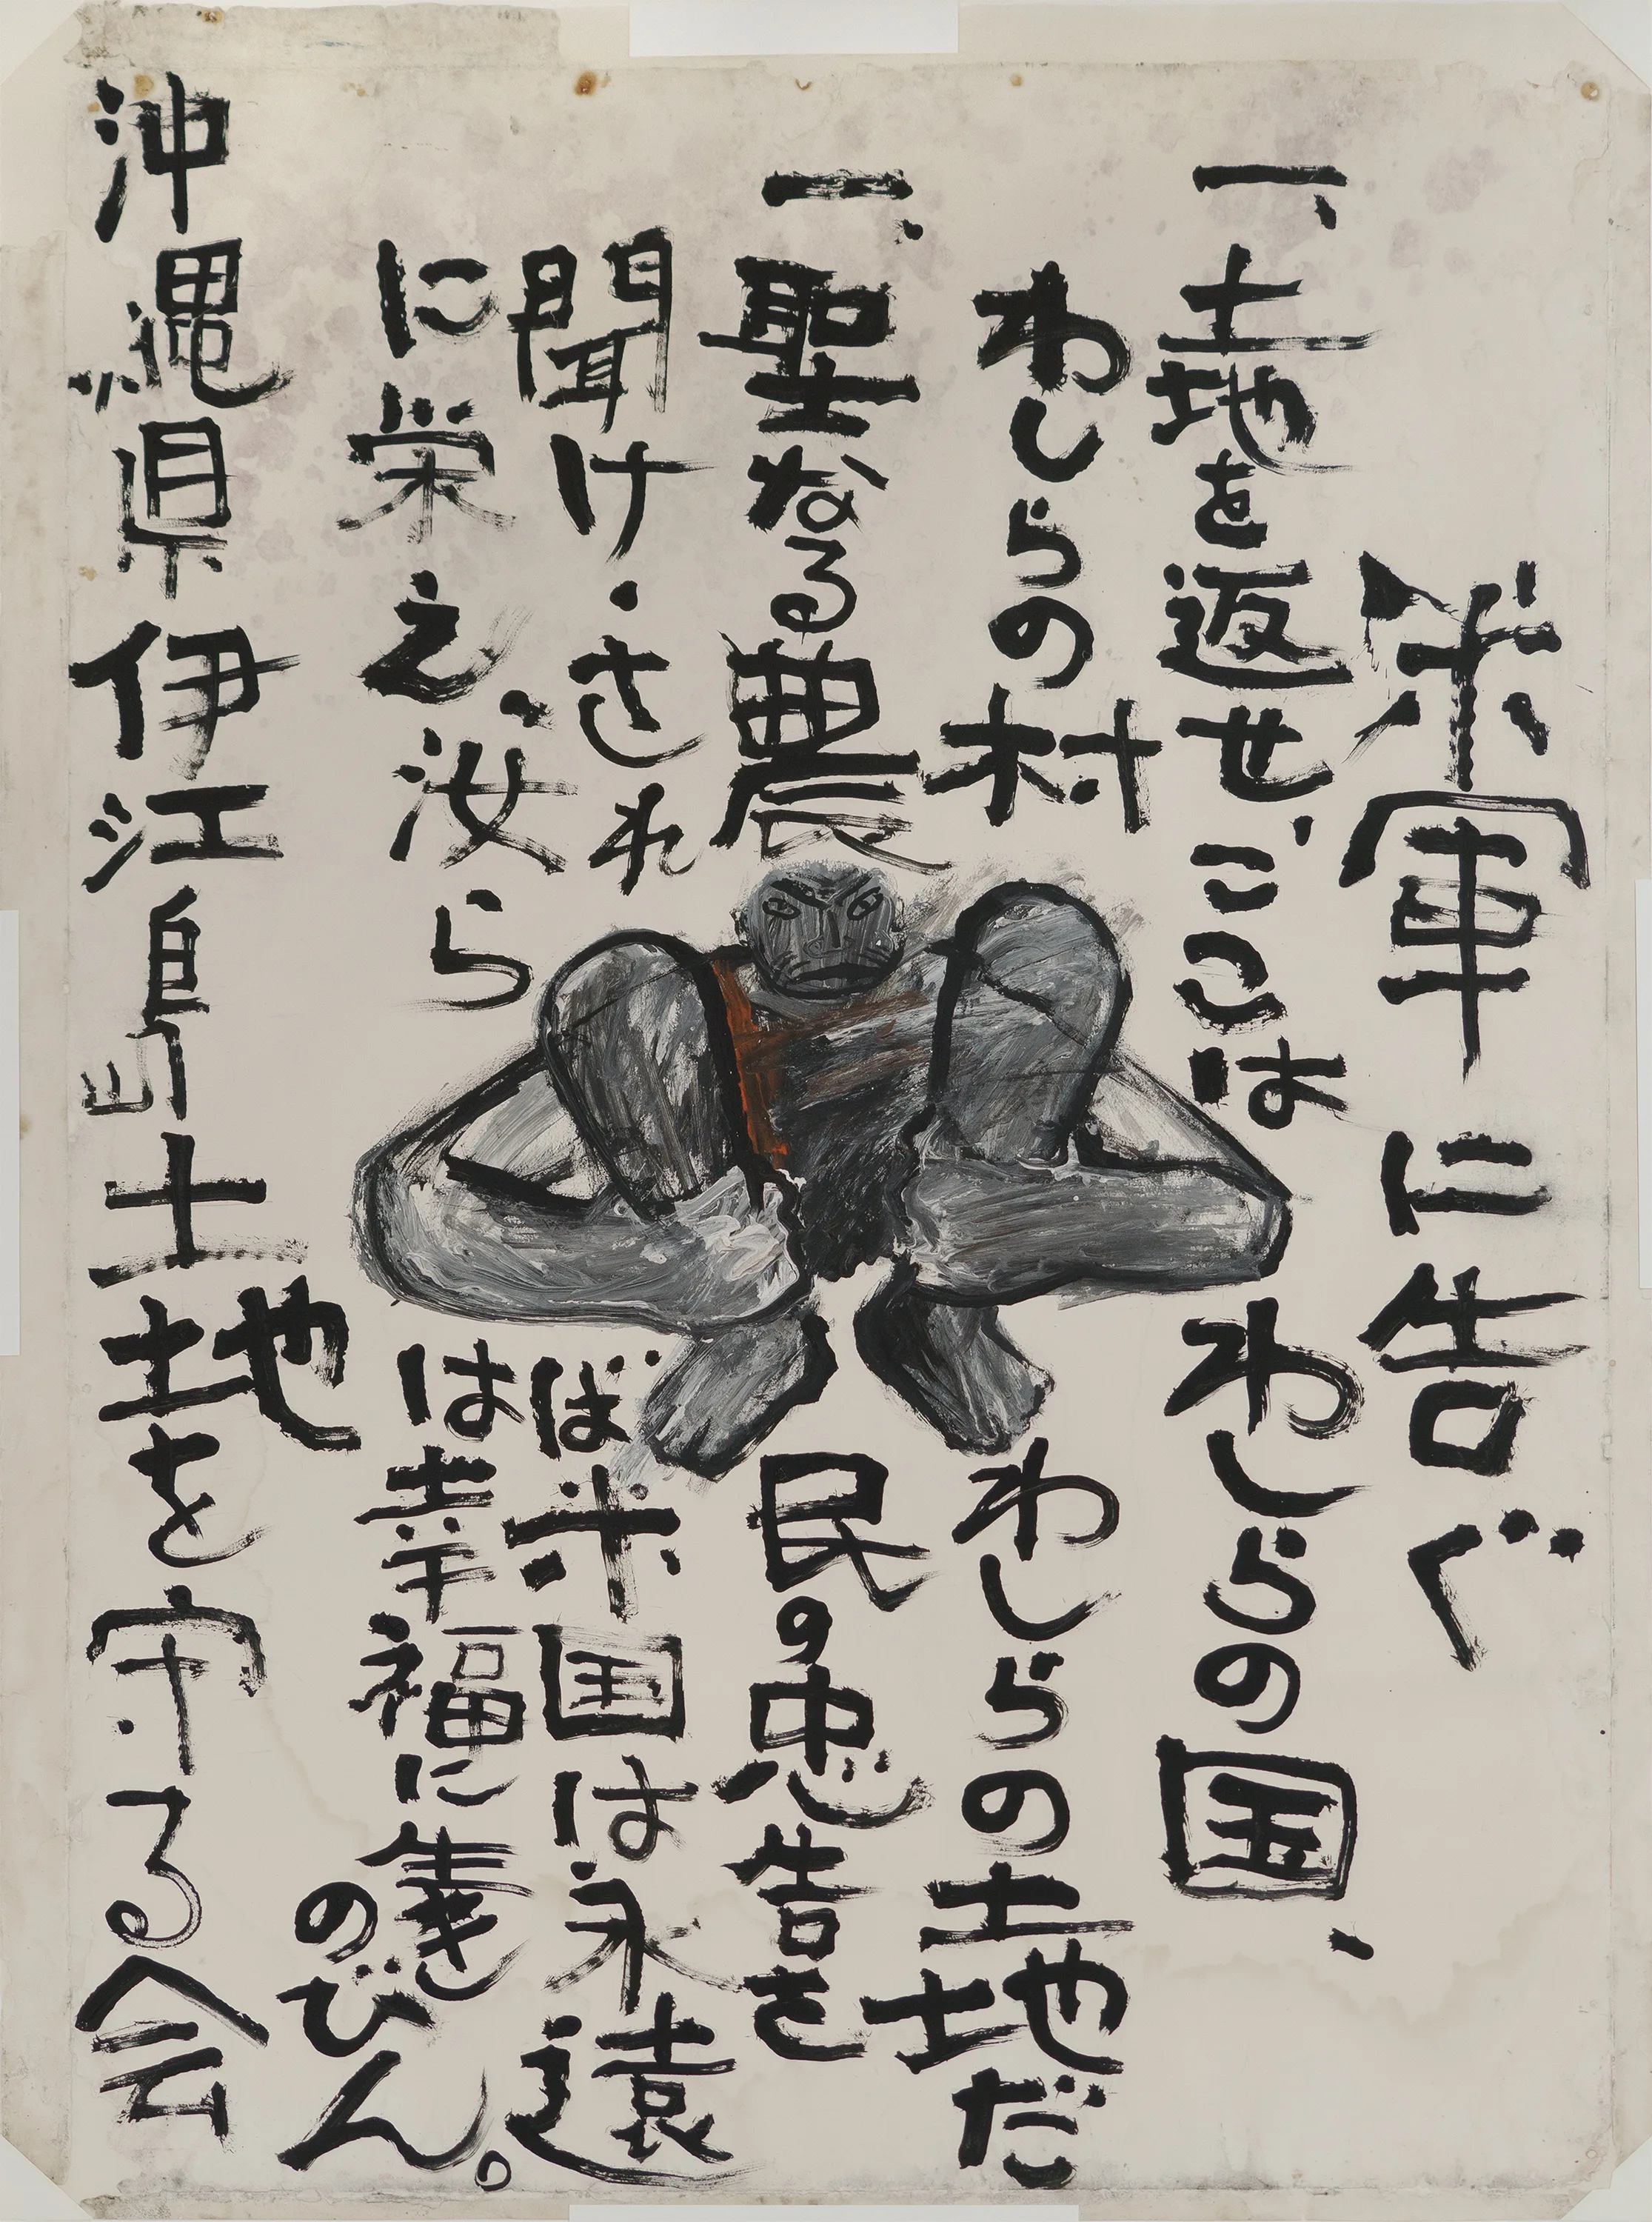 米軍に告ぐ
一、土地を返せ、ここはわしらの国、
わしらの村わしらの土地だ
一、聖なる農民の忠告を
聞け・されば米国は永遠
に栄え、汝らは幸福に生きのびん。
沖縄県伊江島土地を守る会